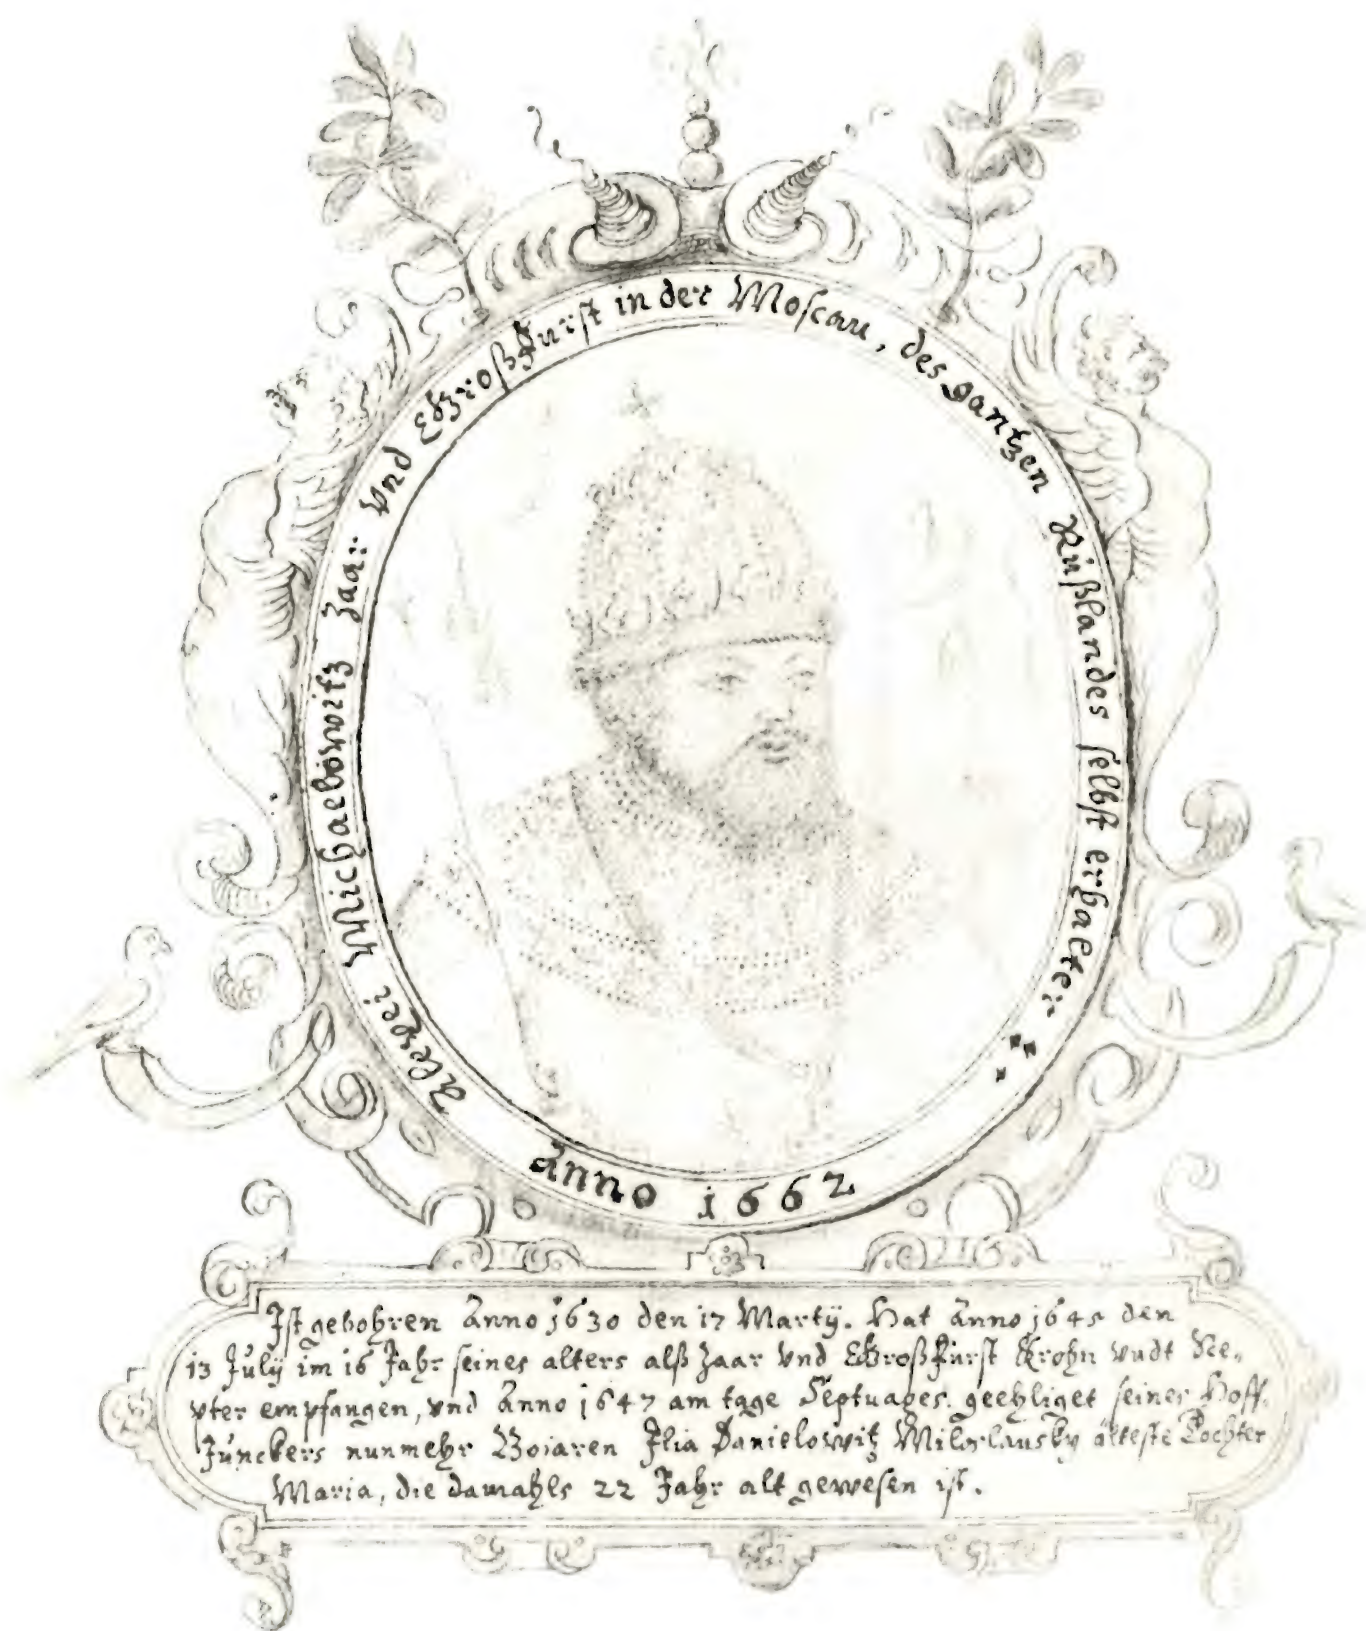 Alexei Michaelowitz Zaar vnd Großfürst in der Moscau, des gantzen Rußlandes selbst erhalter
Anno 1662
Ist gebohren Anno 1630 den 17 Martij. Hat Anno 1645 den
13 Julij im 16 Jahr seines alters alß Zaar vnd Großfürst Krohn vndt Sce„
pter empfangen, vnd Anno 1647 am tage Septuages. geehliget seines Hoff„
Junckers nunmehr Bojaren Ilia Danielowitz Miloslausky älteste Tochter
Maria, die damahls 22 Jahr alt gewesen ist.